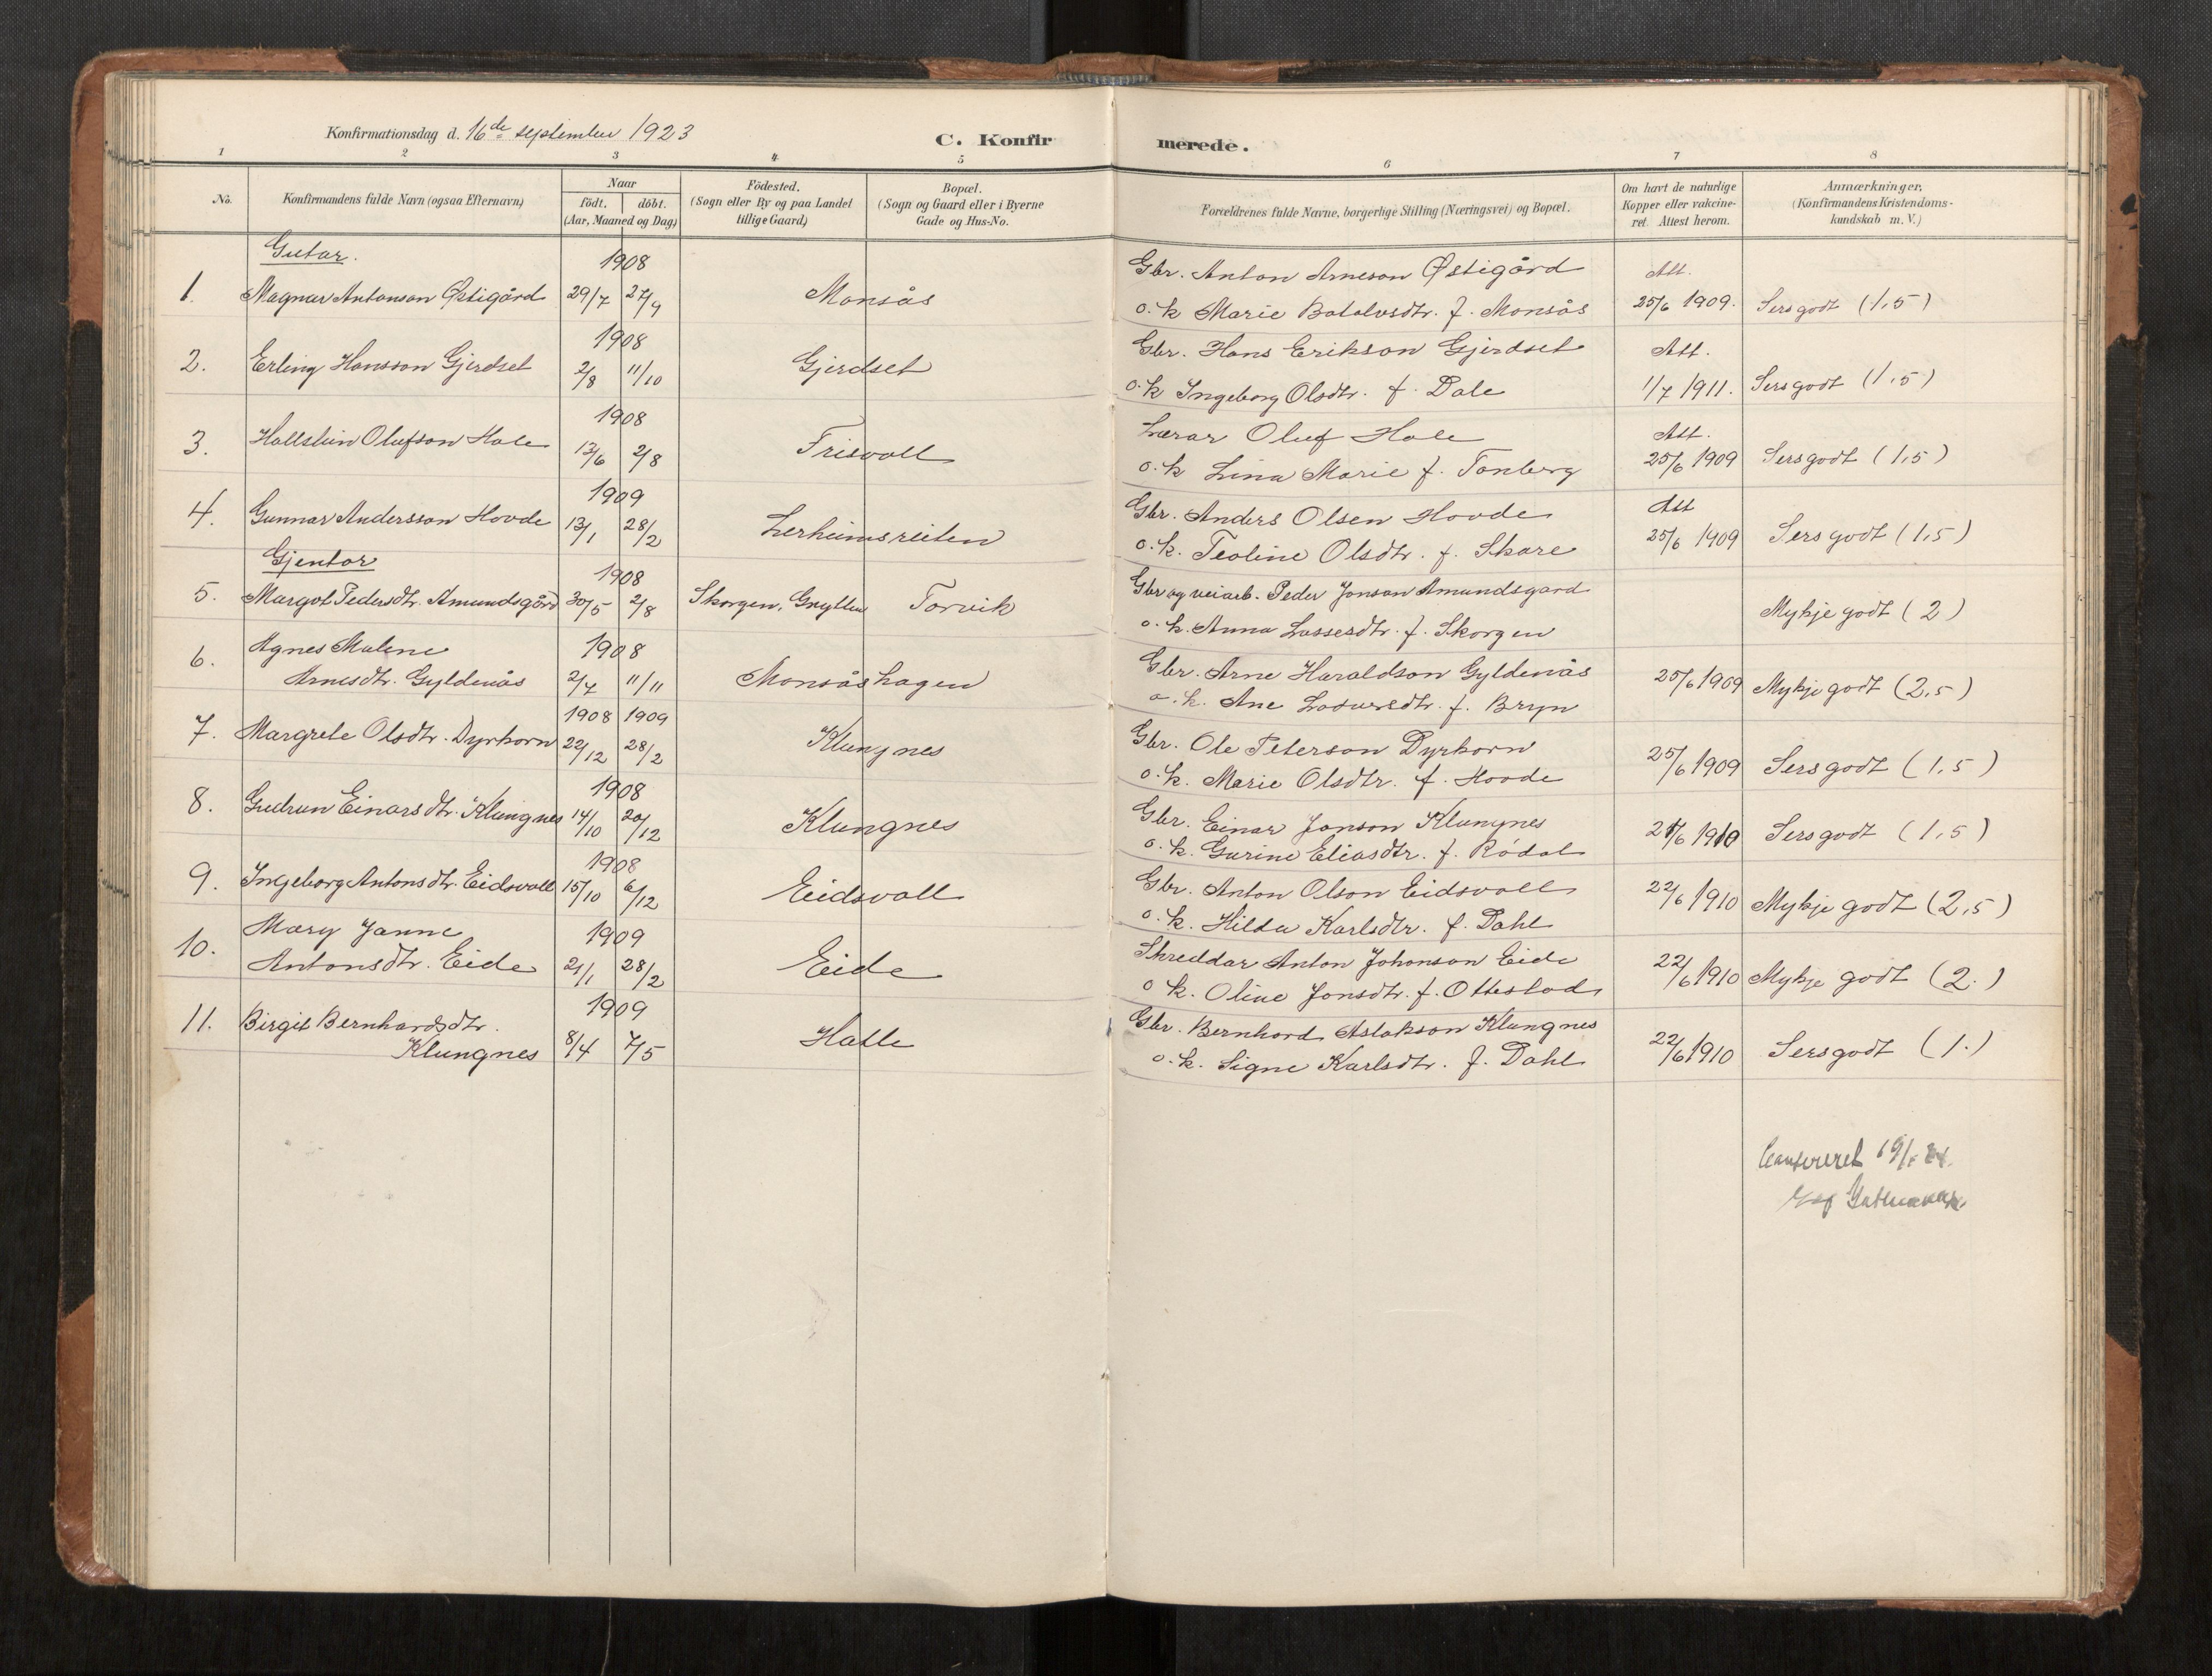 Konfirmationsdag d. 16de september 1923
C. Konfirmerede.
1 2 3 4 5 6 7 8
No.
Konfirmandens fulde Navn (ogsaa Efternavn)
Naar
födt. döbt.
(Aar, Maaned og Dag)
Födested.
(Sogn eller By og paa Landet
tillige Gaard)
Bopæl.
(Sogn og Gaard eller i Byerne
Gade og Hus-No.
Forældrenes fulde Navne, borgerlige Stilling (Næringsvei) og Bopæl.
Om havt de naturlige
Kopper eller vakcine-
ret. Attest herom.
Anmærkninger.
(Konfirmandens Kristendoms-
kundskab m. V.)
Gutar.
1908
1. Magnar Antonson Østigård 29/7 27/9 Monsås
Gbr. Anton Arneson Østigård Att.
o. k Marie Botolvsdtr. f. Monsås 25/6 1909. Sersgodt (1,5)
1908
2. Erling Hansson Gjerdset 2/8 11/10 Gjerdset
Gbr. Hans Erikson Gjerdset Att.
o. k Ingeborg Olsdtr. f. Dale 1/7 1911. Sersgodt (1,5)
1908
3. Hallstein Olufson Hole 13/6 2/8 Frisvoll
Lærar Oluf Hole Att.
o. k Lina Marie f. Tonberg 25/6 1909 Sersgodt (1,5)
1909
4. Gunnar Andersson Hovde 13/1 28/2 Lerheimsreiten
Gbr. Anders Olsen Hovde Att
o. k. Teoline Olsdtr. f. Skare 25/6 1909 Sersgodt (1,5)
Gjentor
1908
5. Margot Pedersdtr. Amundsgård 30/5 2/8 Skorgen, Grytten Torvik
Gbr og veiarb. Peder Jonson Amundsgard
o. k. Anna Lassesdtr. f. Skorgen Mykje godt (2)
6. Agnes Malene 1908
Arnesdtr. Gyldenås 2/7 11/11 Monsåshagen
Gbr. Arne Haraldson Gyldenås 25/6 1909 Mykje godt (2,5)
o. k. Ane f. Bryn
1908 1909
7. Margrete Olsdtr. Dyrkorn 22/12 28/2 Klungnes
Gbr. Ole Peterson Dyrkorn
o. k. Marie Olsdtr. f. Hovde 25/6 1909 Sersgodt (1,5)
1908
8. Gudrun Einarsdtr. Klungnes 14/10 20/12 Klungnes
Gbr. Einar Jonson Klungnes
o. k. Gurine Eliasdtr. f. Rødal 1910 Sersgodt (1,5)
1908
9. Ingeborg Antonsdtr. Eidsvoll 15/10 6/12 Eidsvoll
Gbr. Anton Olson Eidsvoll 22/6 1910 Mykje godt (2,5)
o. k. Hilda Karlsdtr. f. Dahl
10. Mary Janne 1909
Antonsdtr. Eide 21/1 28/2 Eide
Skreddar Anton Johanson Eide 22/6 1910 Mykje godt (2.)
o k. Oline Jonsdtr. f. Ottestad
11. Birgit Bernhardsdtr. 1909
Klungnes 8/4 7/5 Hatle
Gbr. Bernhard Aslakson Klungnes
o. k. Signe Karlsdtr. f. Dahl 22/6 1910 Sersgodt (1.)